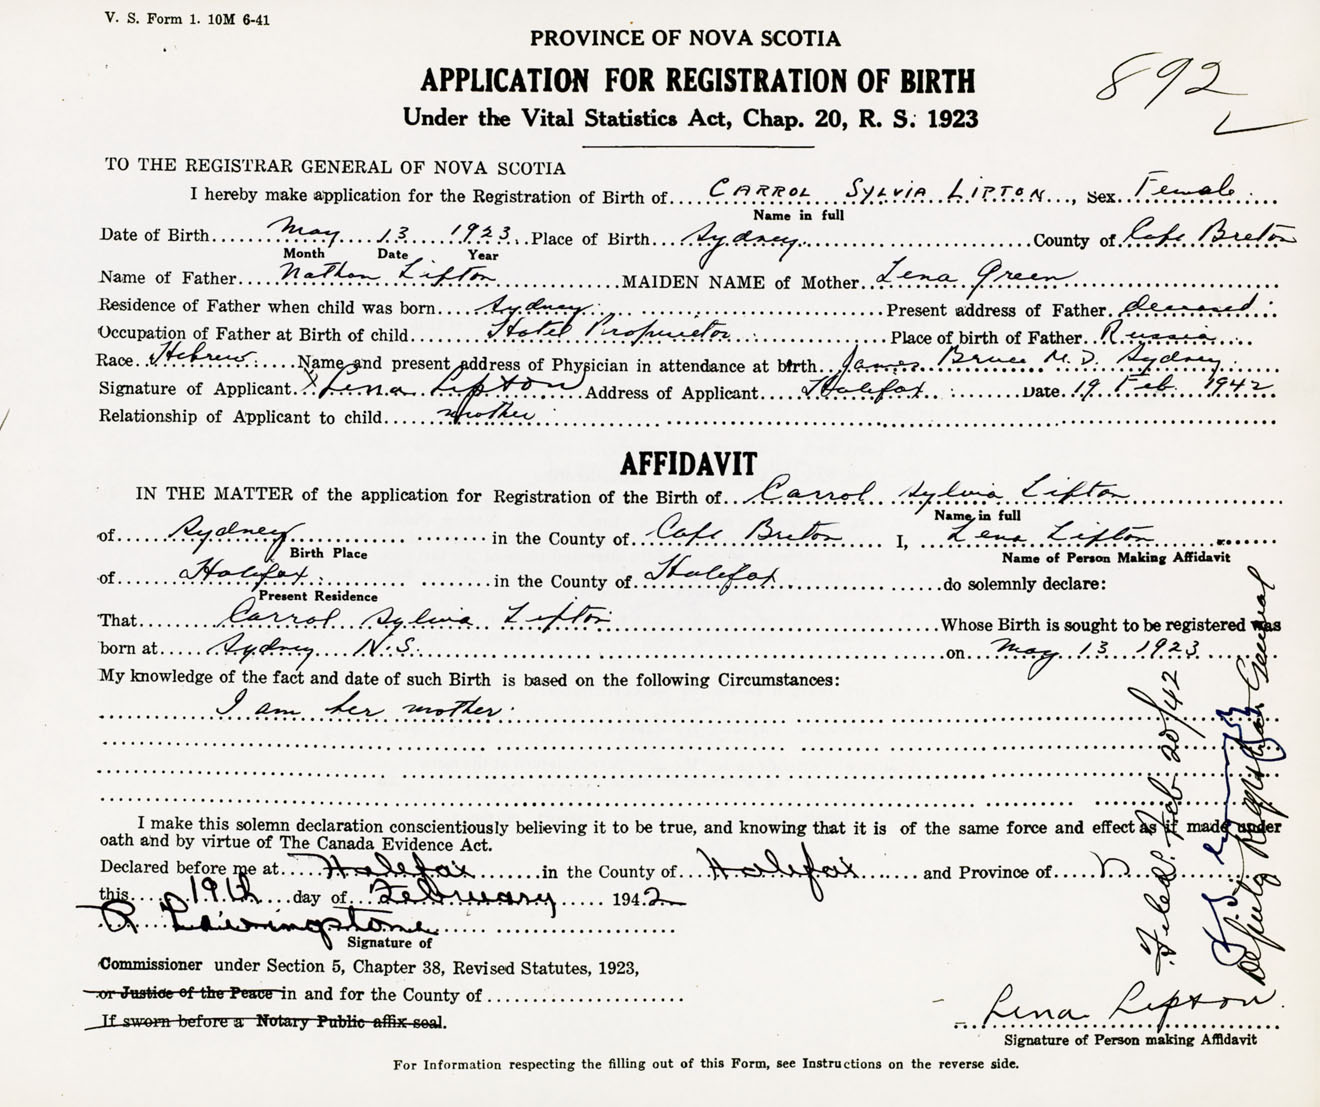 V. S. Form 1. 10M 6-41
PROVINCE OF NOVA SCOTIA
892
APPLICATION FOR REGISTRATION OF BIRTH
Under the Vital Statistics Act, Chap. 20, R. S. 1923
TO THE REGISTRAR GENERAL OF NOVA SCOTIA
I hereby make application for the Registration of Birth of CARROL SYLVIA LIPTON, Sex Female
Name in full
Date of Birth May 13 1923 Place of Birth Sydney County of Cape Breton
Month Date Year
Name of Father Nathan Lipton MAIDEN NAME of Mother Lena Green
Residence of Father when child was born Sydney Present address of Father deceased
Occupation of Father at Birth of child Hotel Proprietor Place of birth of Father Russia
Race Hebrew Name and present address of Physician in attendance at birth James Bruce M.D. Sydney
Signature of Applicant X Lena Lipton Address of Applicant Halifax Date 19 Feb. 1942
Relationship of Applicant to child mother
AFFIDAVIT
IN THE MATTER of the application for Registration of the Birth of Carrol Sylvia Lipton
Name in full
of Sydney in the County of Cape Breton I, Lena Lipton
Birth Place Name of Person Making Affidavit
of Halifax in the County of Halifax do solemnly declare:
Present Residence
That Carrol Sylvia Lipton Whose Birth is sought to be registered was
born at Sydney N.S. on May 13 1923
My knowledge of the fact and date of such Birth is based on the following Circumstances:
I am her mother
I make this solemn declaration conscientiously believing it to be true, and knowing that it is of the same force and effect as if made under
oath and by virtue of The Canada Evidence Act.
Declared before me at Halifax in the County of Halifax and Province of N
this 19th day of February 1942
R Livingstone
Signature of
Commissioner under Section 5, Chapter 38, Revised Statutes, 1923,
or Justice of the Peace in and for the County of
If sworn before a Notary Public affix seal.
Filed. Feb 20/42
Deputy Registrar General
Lena Lipton
Signature of Person making Affidavit
For Information respecting the filling out of this Form, see Instructions on the reverse side.